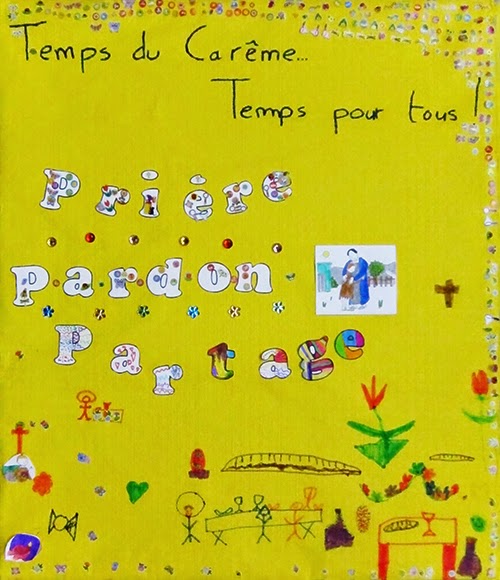 Temps du Carême...
Temps pour tous !
Prière
Pardon
Partage